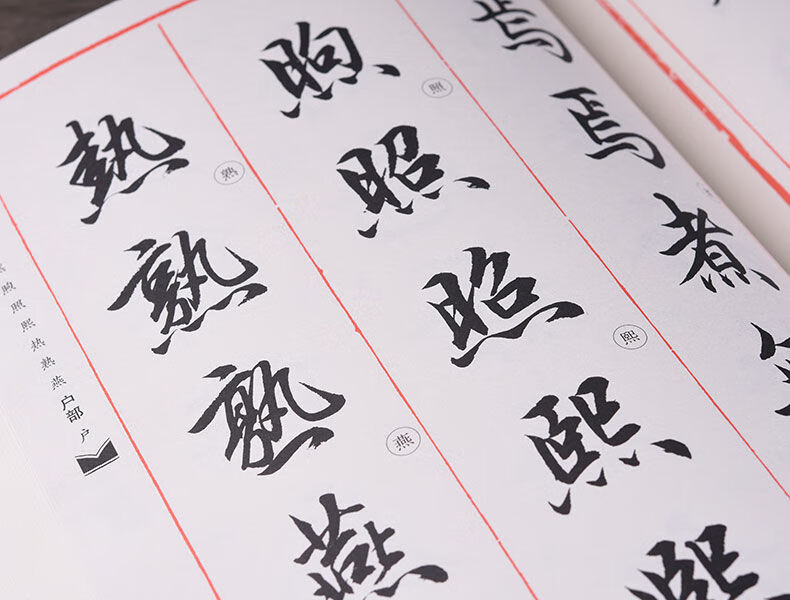 焉焉煮
煦照照照熙熙熙
熱熟熟熟燕燕
煦照熙热熟燕
户部 户